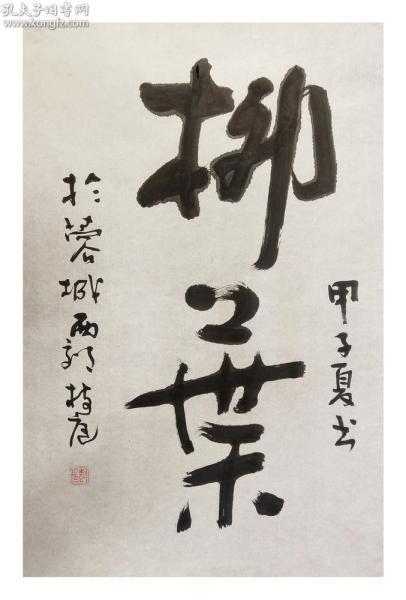 孔夫子旧书网
www.kongfz.com
甲子夏书
柳葉
於蓉城西郊